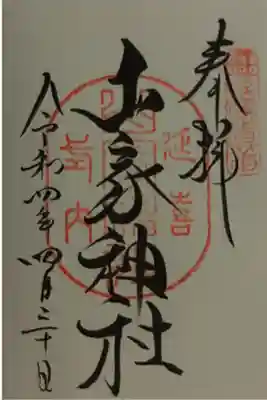 奉拝
延喜
山家神社
式内
令和四年四月三十日